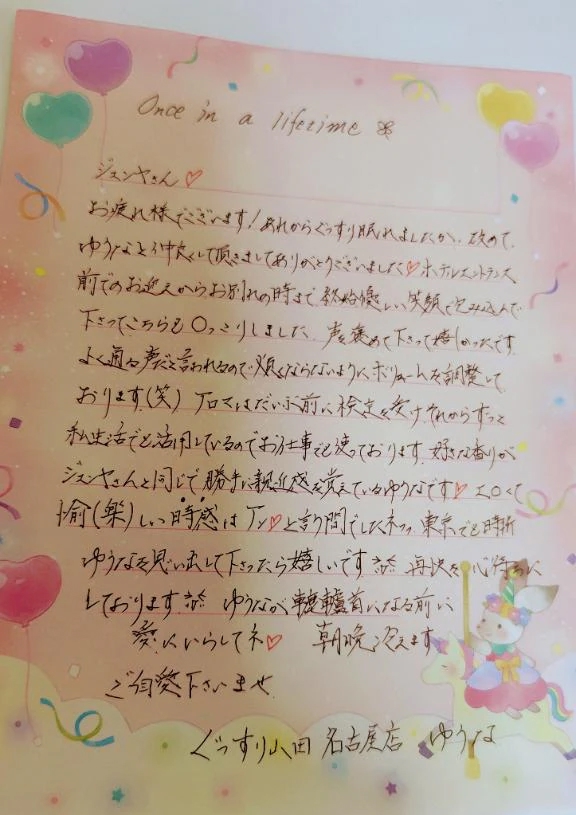 Once in a lifetime
ジュンヤさん♡
お疲れ様でございます!あれからぐっすり眠れましたか、改めて、
ゆうなと仲良くして頂きましてありがとうございました♡ホテルエントランス
前でのお迎えからお別れの時まで、終始優しい笑顔で包み込んで
下さってこちらも〇っこりしました、声を褒めて下さって嬉しかったです
よく通る声だと言われるので煩くならないようにボリュームを調整して
おります(笑) アロマはだいぶ前に検定を受けそれからずっと
私生活でも活用しているのでお仕事でも使っております。好きな香りが
ジュンヤさんと同じで勝手に親近感を覚えているゆうなです♡エロくて
愉(楽)しい時感はアン♡と言う間でしたネ 東京でも時折
ゆうなを思い出して下さったら嬉しいです 再訪を心待ちに
しております ゆうなが轆轤首になる前に
愛にいらしてネ♡ 朝晩冷えます
ご自愛下さいませ
ぐっすり山田 名古屋店 ゆうな